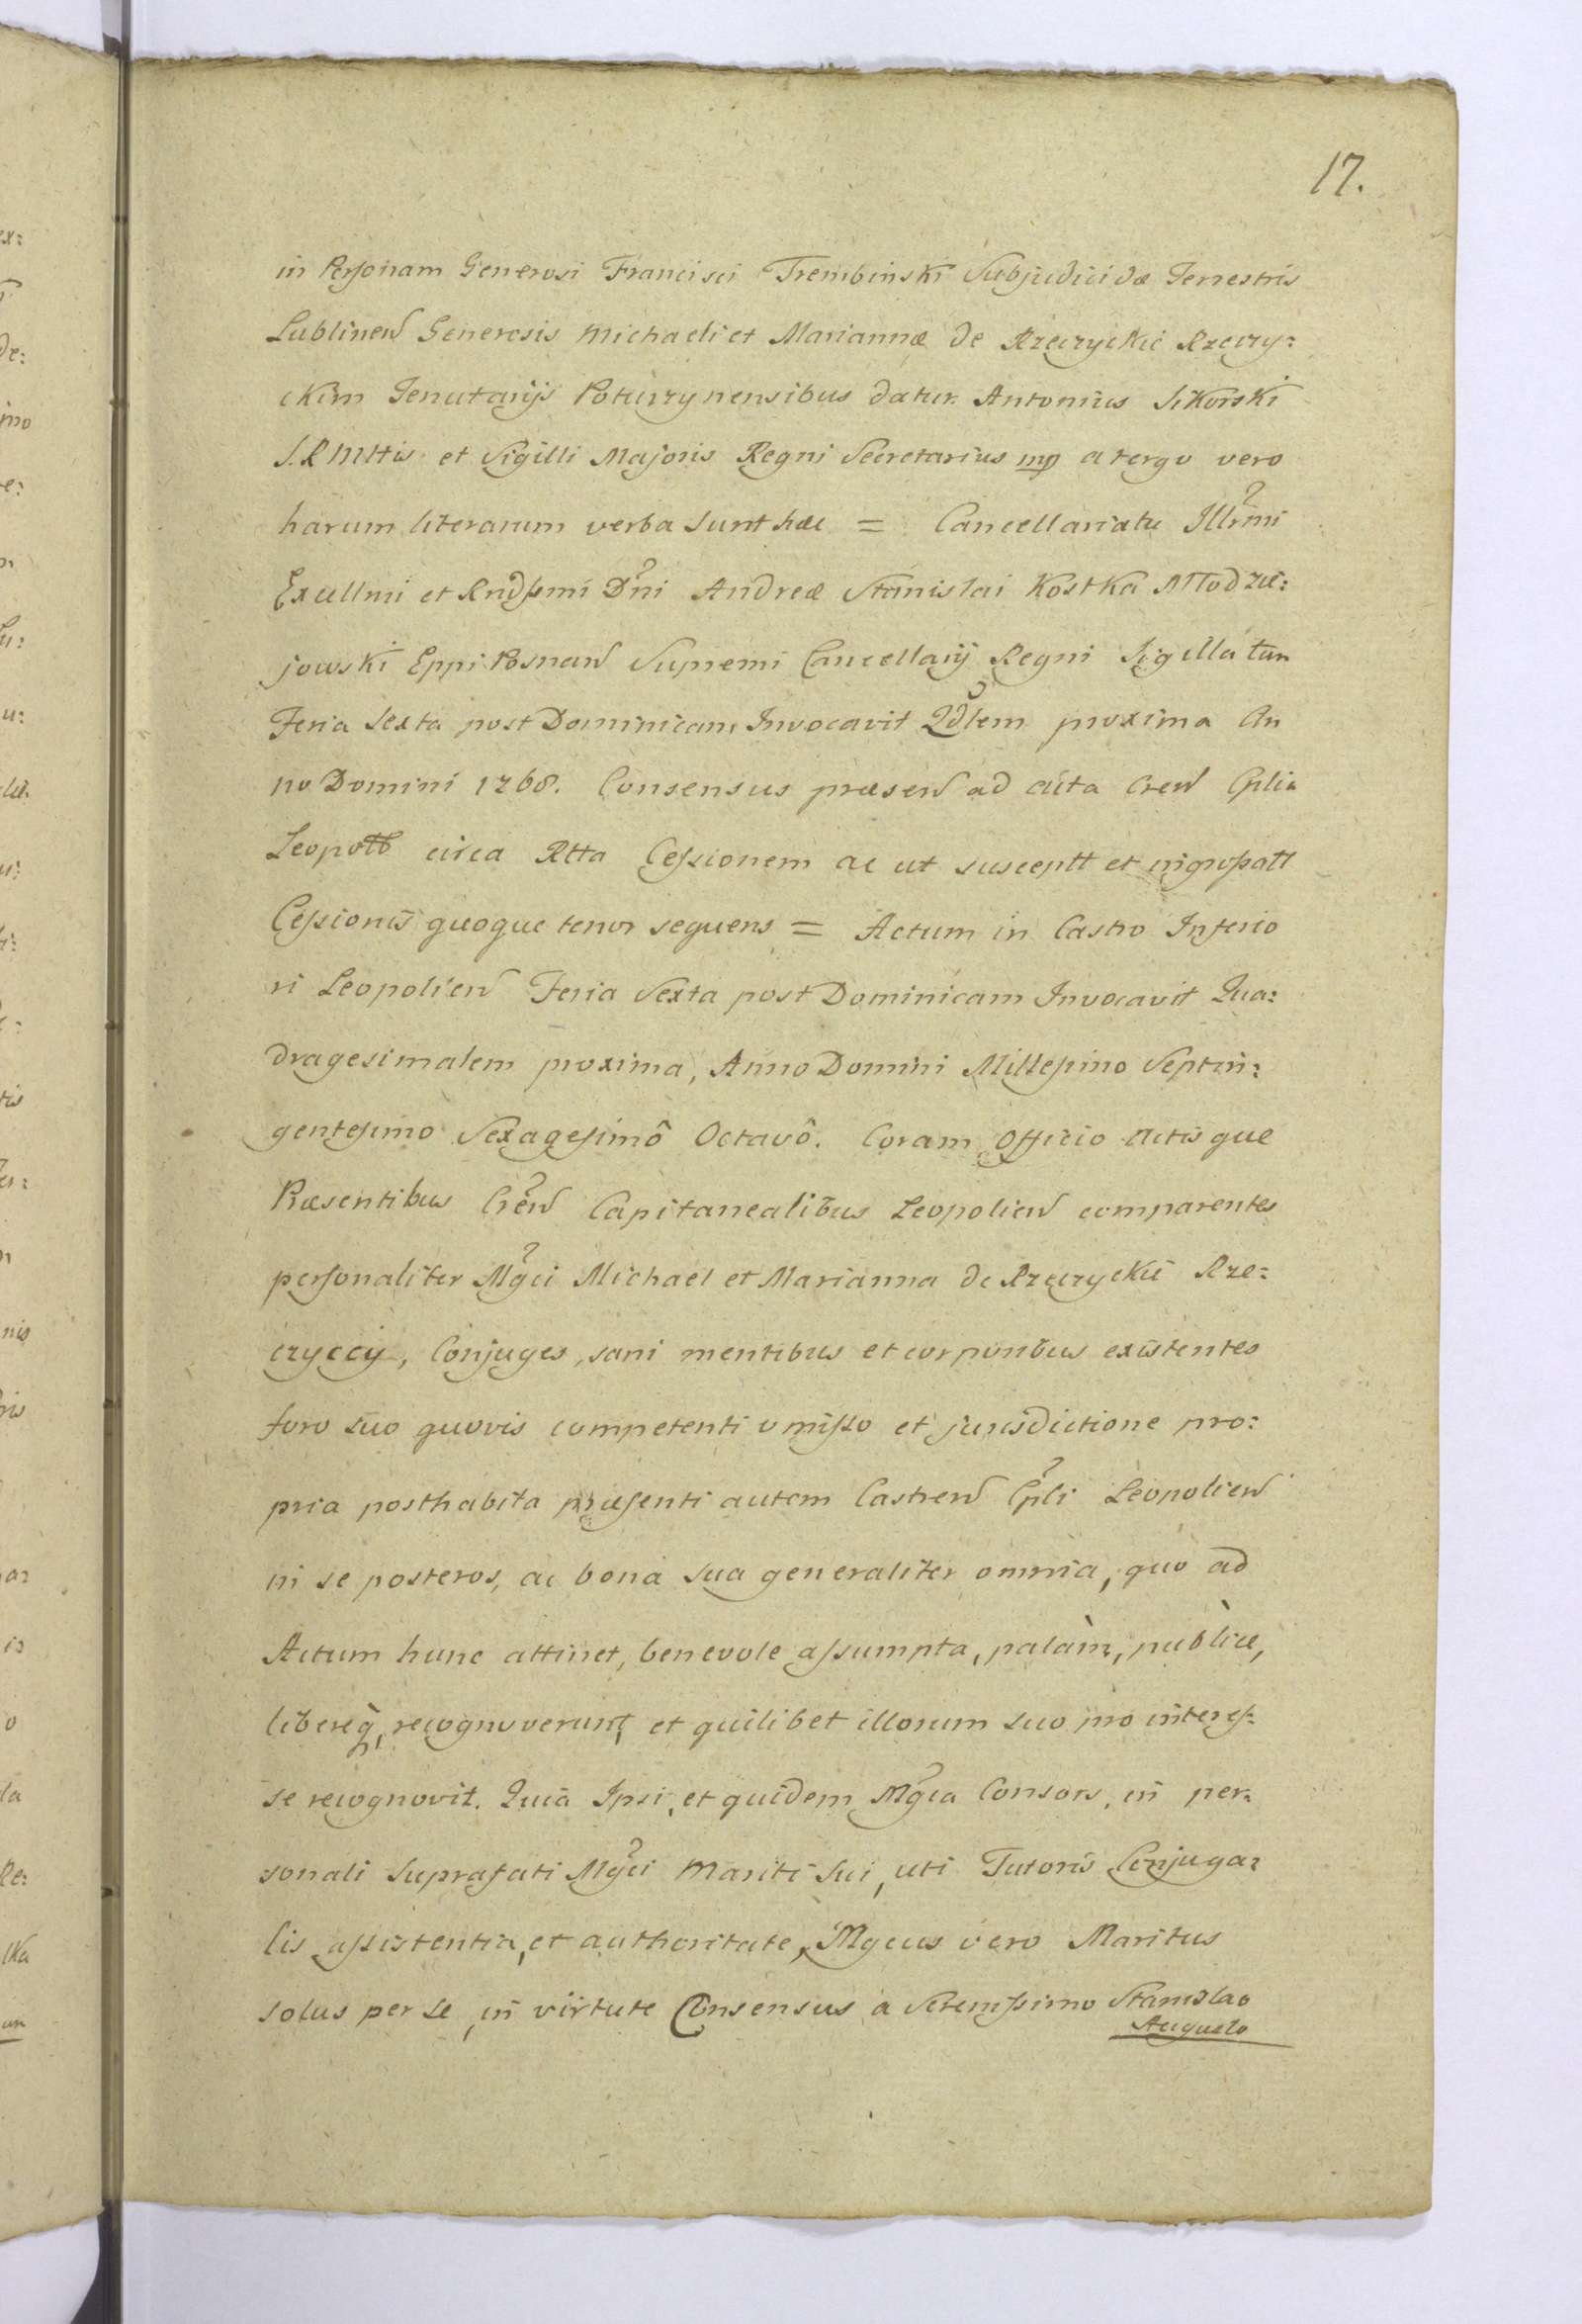 17.
in Personam Generosi Francisci Trembinski Subjudicidæ Terrestris
Lublinen Generosis Michaeli et Mariannæ de Rzeczyckie Rzeczy:
ckim Tenutarijs Poturzynensibus datur. Antonius Sikorski
S. R Mttis et Sigilli Majoris Regni Secretarius mp a tergo vero
harum literarum verba sunt hæc = Cancellariatu Illrmi
Excellmi et Rndssmi Dni Andreæ Stanislai Kostka Młodzie:
jowski Eppi Posnan Supremi Cancellarij Regni Sigillatum
Feria Sexta post Dominicam Invocavit Qdlem proxima An
no Domini 1768. Consensus præsen ad acta Cren Cplia
Leopoll circa Rtta Cessionem ac ut susceptt et ingrossatt
Cessionis quoque tenor sequens = Actum in Castro Inferio
ri Leopolien Feria Sexta post Dominicam Invocavit Qua:
dragesimalem proxima, Anno Domini Millesimo Septin:
gentesimo Sexagesimô Octavô. Coram Officio Actisque
Præsentibus Cren Capitanealibus Leopolien comparentes
personaliter Mgci Michael et Marianna de Rzeczyckie Rze:
czyccij, Conjuges, sani mentibus et corporibus existentes
foro suo quovis competenti omisso et jurisdictione pro:
pria posthabita præsenti autem Castren Cpli Leopolien
in se posteros, ac bona sua generaliter omnia, quo ad
Actum hunc attinet, benevole assumpta, palàm, publicè,
libereq̀, recognoverunt, et quilibet illorum suo pro interes:
se recognovit. Quia Ipsi, et quidem Mgca Consors, in per:
sonali suprafati Mgci Mariti sui, uti Tutoris Conjuga:
lis assistentia, et authoritate, Mgcus vero Maritus
solus per se, in virtute Consensus a Serenissimo Stanislao
Augusto